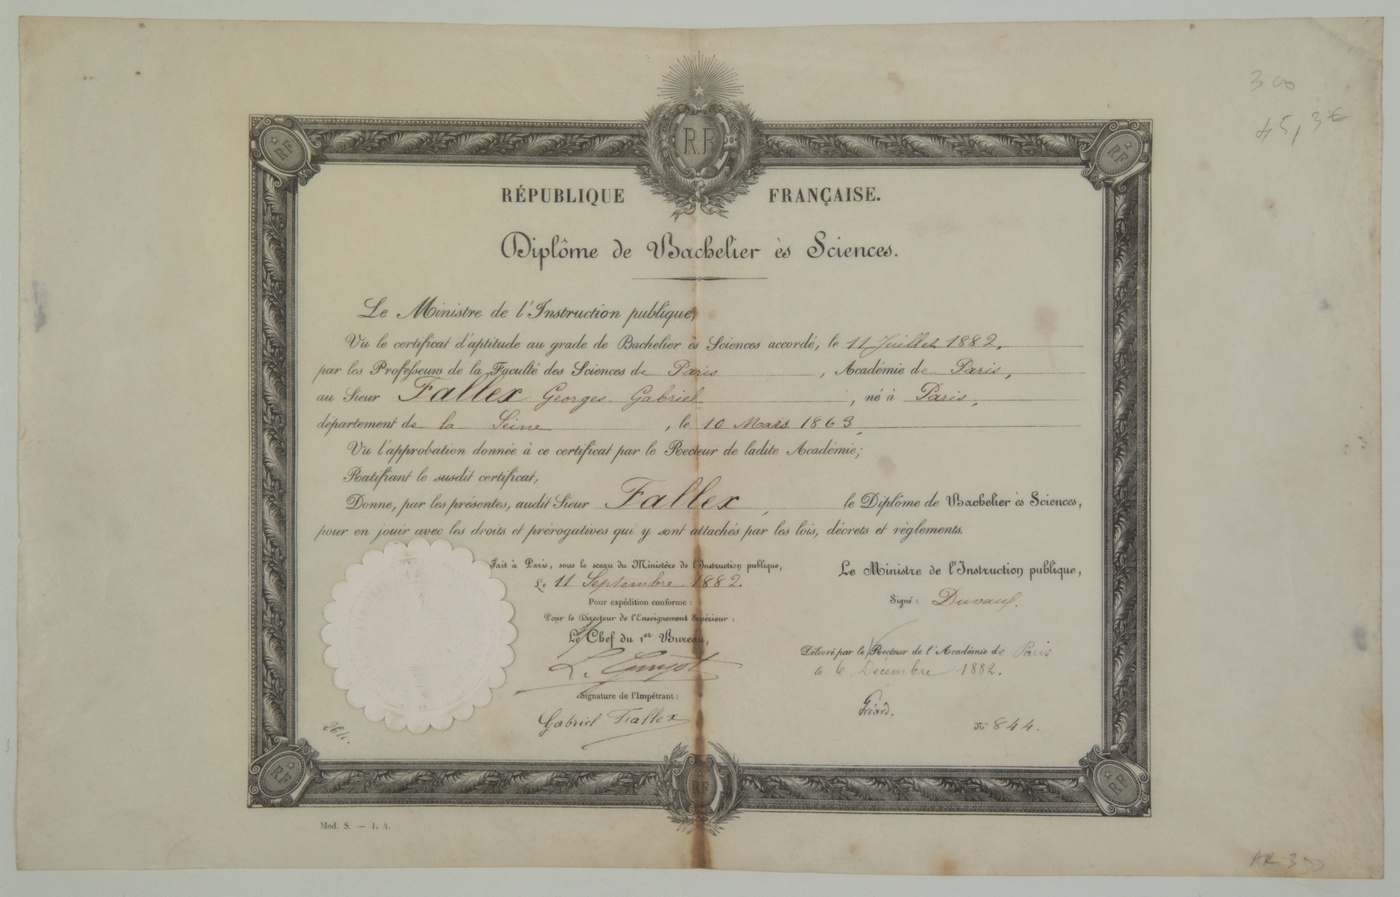 300
45,3€
RF
RF
RF
RÉPUBLIQUE FRANÇAISE.
Diplôme de Bachelier ès Sciences.
Le Ministre de l'Instruction publique,
Vu le certificat d'aptitude au grade de Bachelier ès Sciences accordé, le 11 Juillet 1882,
par les Professeurs de la Faculté des Sciences de Paris, Académie de Paris,
au Sieur Fallex Georges Gabriel, né à Paris,
département de la Seine, le 10 Mars 1863,
Vu l'approbation donnée à ce certificat par le Recteur de ladite Académie;
Ratifiant le susdit certificat,
Donne, par les présentes, audit Sieur Fallex, le Diplôme de Bachelier ès Sciences,
pour en jouir avec les droits et prérogatives qui y sont attachés par les lois, décrets et règlements.
Fait à Paris, sous le sceau du Ministère de l'Instruction publique,
Le 11 Septembre 1882.
Pour expédition conforme :
Pour le Directeur de l'Enseignement Supérieur :
Le Chef du 1er Bureau,
Signature de l'Impétrant :
Gabriel Fallex
Le Ministre de l'Instruction publique,
Signé : Duvaux.
Délivré par le Recteur de l'Académie de Paris
le 6 Décembre 1882.
Gréard.
N° 844.
RF
RF
RF
Mod. 8. — 1. 4.